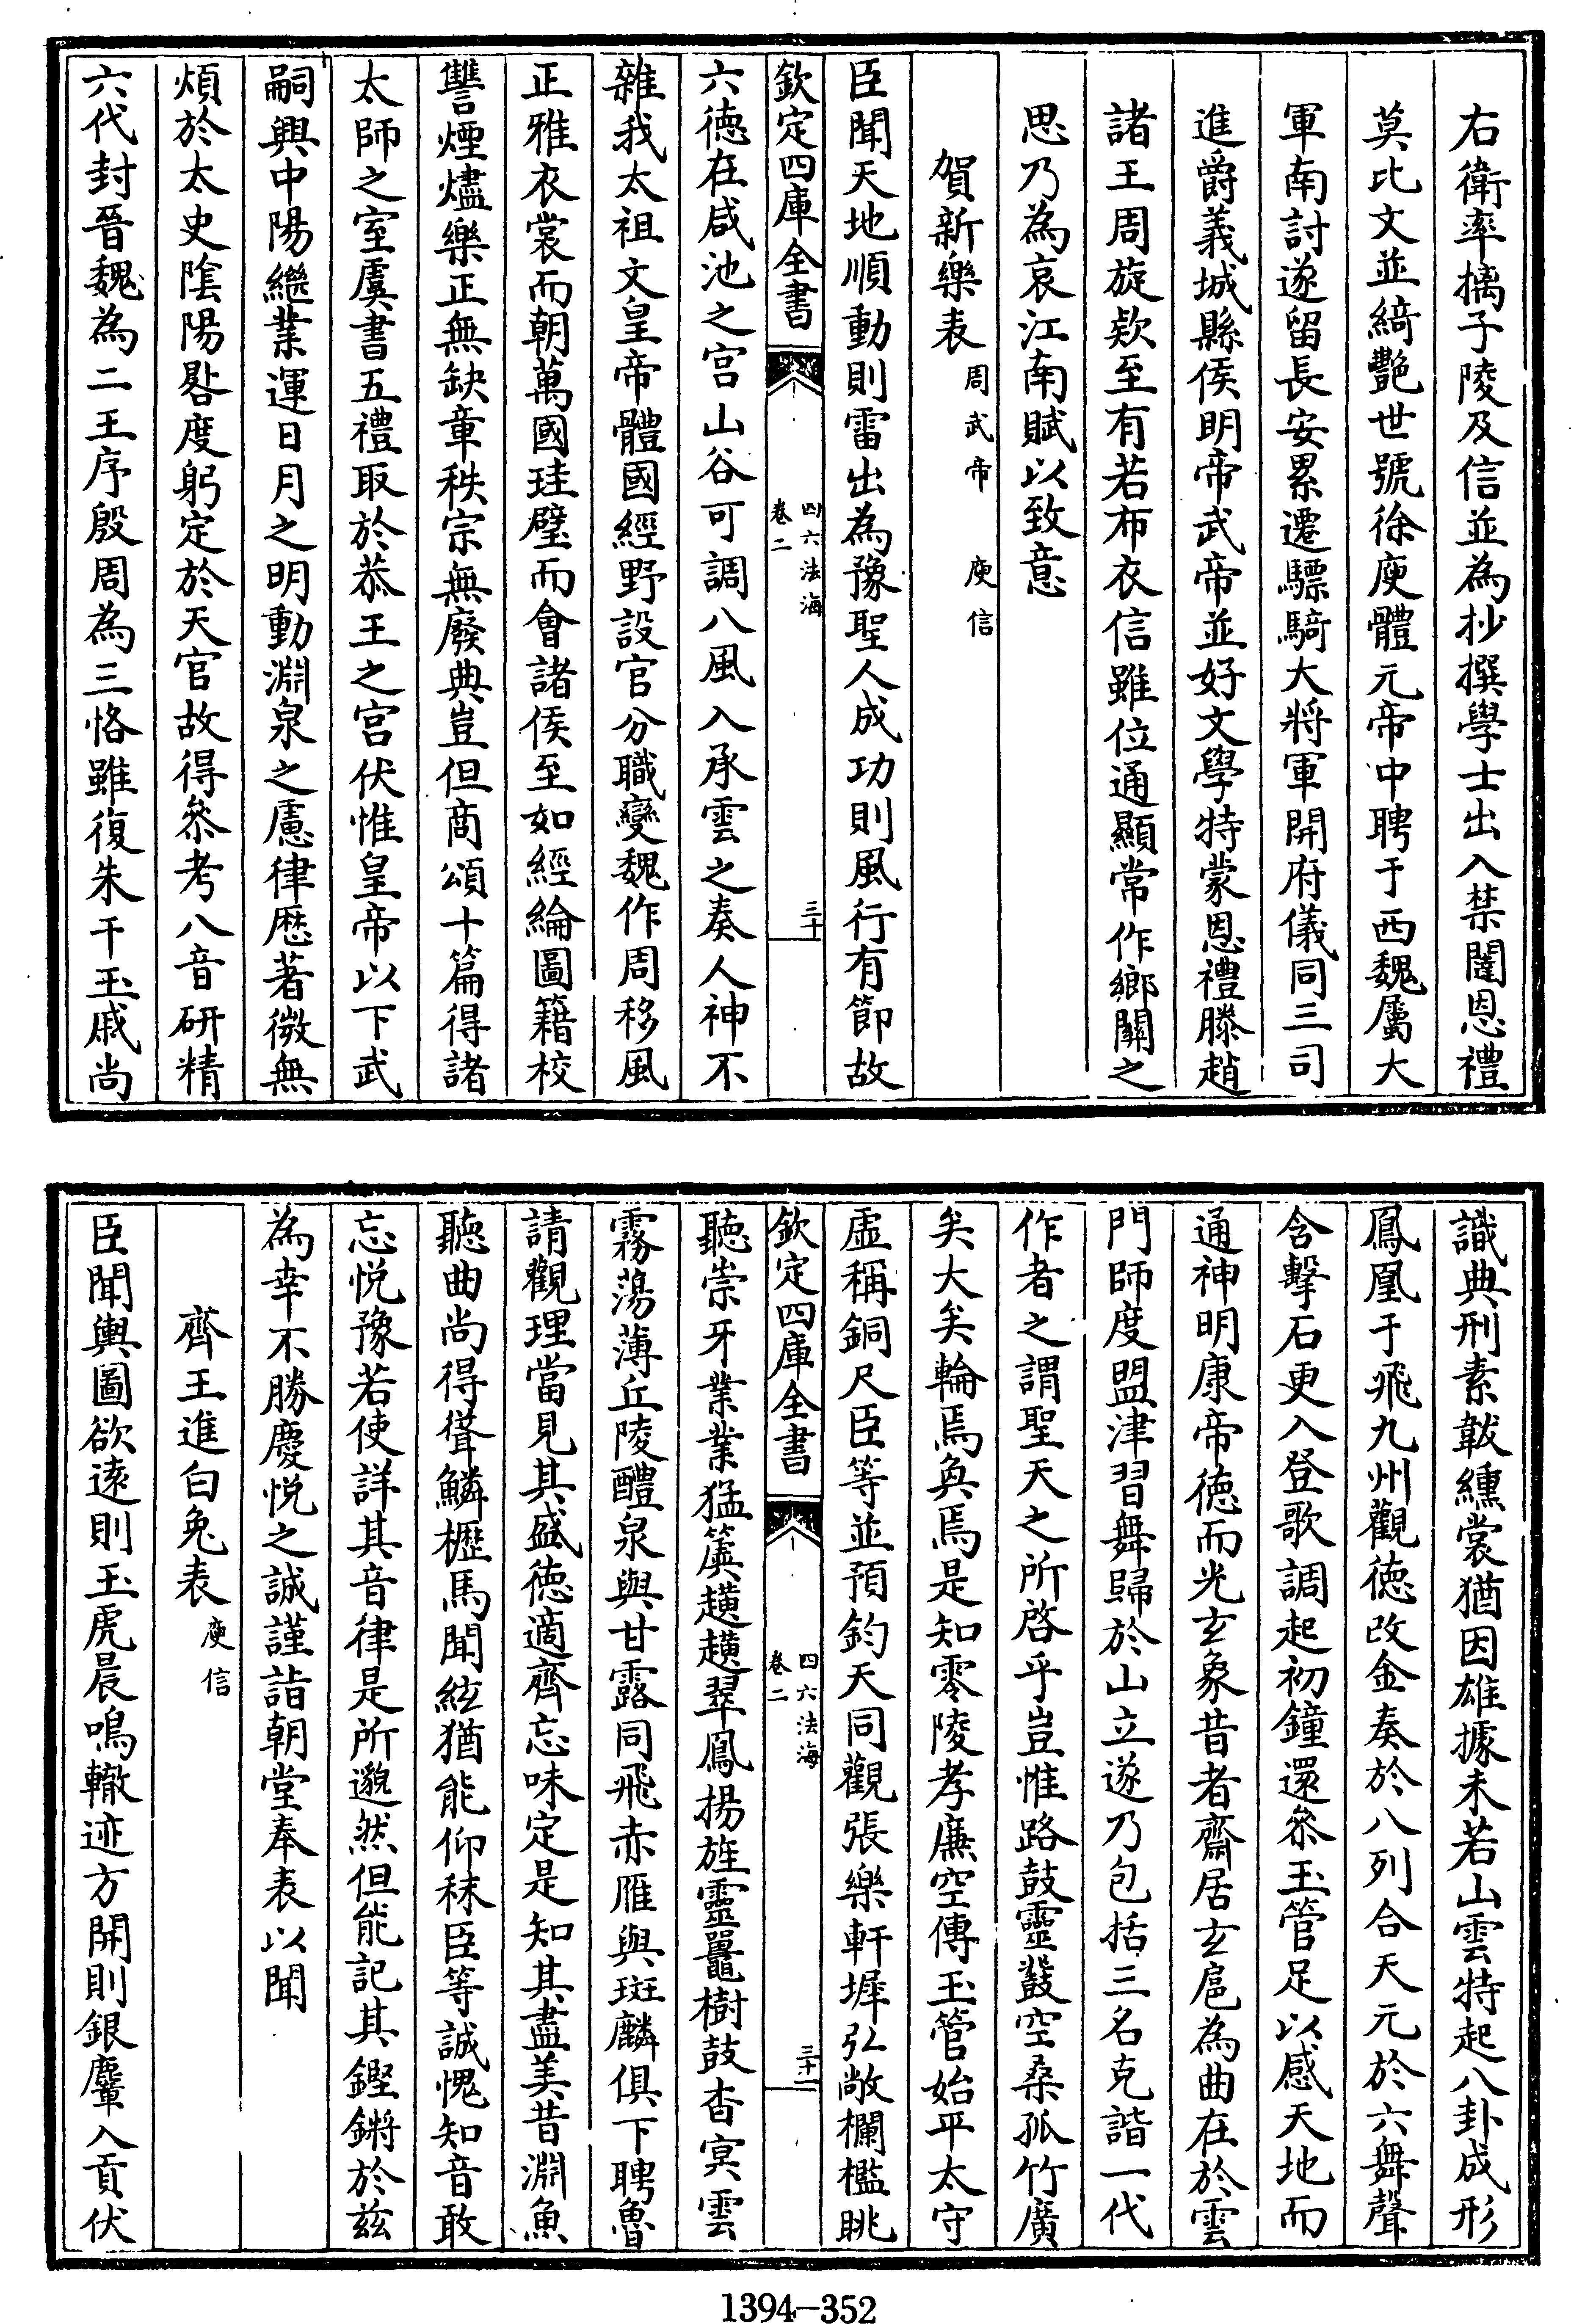 右衛率摛子陵及信並為抄撰學士出入禁闥恩禮
莫比文並綺艷世號徐庾體元帝中聘于西魏屬大
軍南討遂留長安累遷驃騎大將軍開府儀同三司
進爵義城縣侯明帝武帝並好文學特蒙恩禮滕趙
諸王周旋欵至有若布衣信雖位通顯常作鄉關之
思乃為哀江南賦以致意
賀新樂表 周武帝 庾信
臣聞天地順動則雷出為豫聖人成功則風行有節故
欽定四庫全書 四六法海 卷二 三十
六德在咸池之宫山谷可調八風入承雲之奏人神不
雜我太祖文皇帝體國經野設官分職變魏作周移風
正雅衣裳而朝萬國珪璧而會諸侯至如經綸圖籍校
讐煙燼樂正無缺章秩宗無廢典豈但商頌十篇得諸
太師之室虞書五禮取於恭王之宫伏惟皇帝以下武
嗣興中陽繼業運日月之明動淵泉之慮律厯著微無
煩於太史陰陽晷度躬定於天官故得參考八音研精
六代封晉魏為二王序殷周為三恪雖復朱干玉戚尚
識典刑素韍纁裳猶因雄據未若山雲特起八卦成形
鳳凰于飛九州觀德改金奏於八列合天元於六舞聲
含擊石更入登歌調起初鐘還參玉管足以感天地而
通神明康帝德而光玄象昔者齋居玄扈為曲在於雲
門師度盟津習舞歸於山立遂乃包括三名克諧一代
作者之謂聖天之所啓乎豈惟路鼓靈鼗空桑孤竹廣
矣大矣輪焉奐焉是知零陵孝廉空傳玉管始平太守
虛稱銅尺臣等並預鈞天同觀張樂軒墀弘敞欄檻眺
欽定四庫全書 四六法海 卷二 三十一
聽崇牙業業猛簴趪趪翠鳳揚旌靈鼉樹鼓杳寞雲
霧蕩薄丘陵醴泉與甘露同飛赤雁與斑麟俱下聘魯
請觀理當見其盛德適齊忘味定是知其盡美昔淵魚
聽曲尚得聳鱗櫪馬聞絃猶能仰秣臣等誠愧知音敢
忘悅豫若使詳其音律是所邈然但能記其鏗鏘於兹
為幸不勝慶悅之誠謹詣朝堂奉表以聞
齊王進白兔表 庾信
臣聞輿圖欲遠則玉虎晨鳴轍迹方開則銀麞入貢伏
1394-352